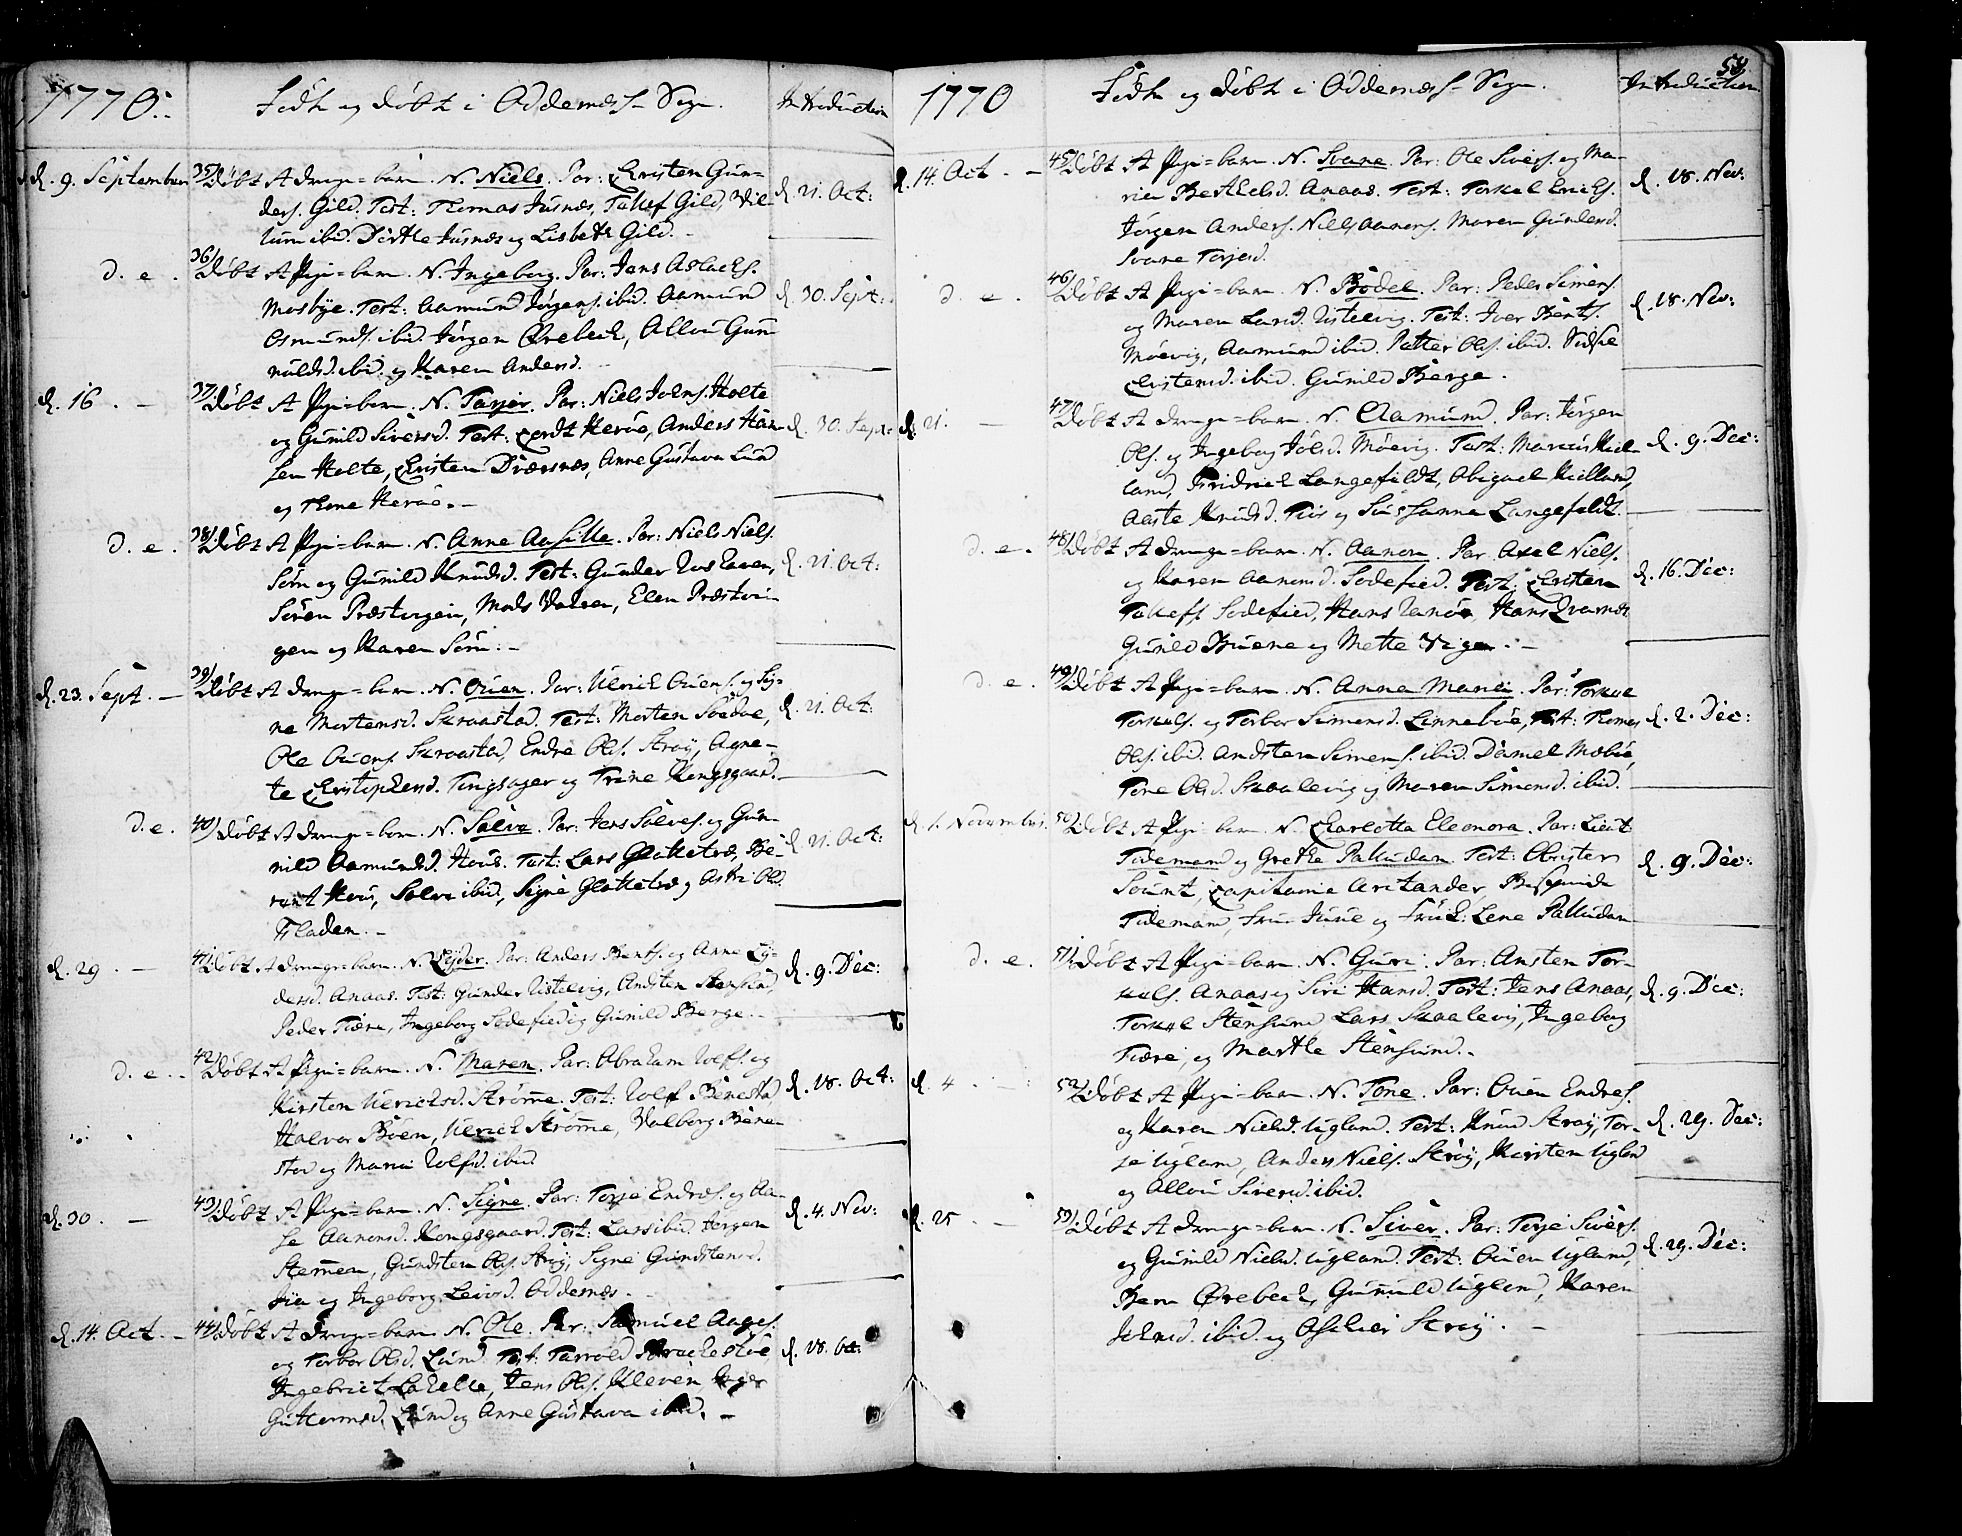 1770.
Födte og döbte i Oddernæss Sogn.
Introduction
d. 9. September
35/ Döbt Et Drenge=barn. N. Niels. Par: Christen Gun-
ders. Gild. Test: Thomas Jusnæs, Tallef Gild, Wil-
lum ibid. Dorthe Jusnæs og Lisbeth Gild.
d. 21. Oct:
d. e.
36/ Döbt Et Pige=barn. N. Ingeborg. Par: Jens Aslachs.
Mosbye. Test: Aamund Jörgens. ibid. Aamund
Osmunds. ibid. Jörgen Örebech, Allou Gun
nulds d. ibid. og Karen Andersd.
d. 30. Sept:
d. 16. –
37/ Döbt Et Pige=barn. N. Torjer. Par: Niels Johns. Holte
og Gunild Siversd. Test: Cordt Heröe, Anders Han-
sen Holte, Christen Dværsnæs, Anne Gustava Lund
og Thone Heröe. –
d. 30. Sept:
d. e.
38/ Döbt Et Pige=barn. N. Anne Aasille. Par: Niels Niels.
Söm og Gunild Knudsd. Test: Gunder
Sören Præstvigen, Mads Præstvi-
gen og Karen Söm. –
d. 21. Oct:
d. 23. Sept. –
39/ Döbt Et Drenge=barn. N. Ouen. Par: Ulrich Ouens. og Sig-
ne Mortensd. Skraastad. Test: Morten Sodal,
Ole Ouens. Skraastad, Endre Ols. Stray, Agne-
te Christophersd. Tingsager og Trine Kongsgaard.
d. 21. Oct:
d. e.
40/ Döbt Et Drenge=barn. N. Salve. Par: Jens Salves. og Gun-
nild Aamundsd. Houe. Test: Lars Glattetræ, Be-
rent Hou, Salve ibid, Signe Glattetræ og Astri Olsd.
Fladen. –
d. 21. Oct:
d. 29. –
41/ Döbt Et Drenge=barn. N. Lyder. Par: Anders Bents. og Anne Ly-
dersd. Anaas. Test: Gunder Ustelvig, Andsten Stensund,
Peder Tiære, Ingeborg Sodefied og Gunild Berge.
d. 9. Dec:
d. e. –
42/ Döbt Et Pige=barn. N. Maren. Par: Abraham Wolfs. og
Kirsten Ulrichsd. Strömme. Test: Wolf Benestad,
Halvor Böen, Ulrich Strömme, Walborg Bene-
stad og Maria Wolfsd. ibid.
d. 18. Oct:
d. 30. –
43/ Döbt Et Pige=barn. N. Signe. Par: Torje Endres. og Aa-
se Aanonsd. Kongsgaard. Test: Lars ibid. Jörgen
Stemmen, Gundsten Ols. Stray, Signe Gundstensd.
og Ingeborg Leivsd. Oddernæs.
d. 4. Nov:
d. 14. Oct. –
44/ Döbt Et Drenge=barn. N. Ole. Par: Samuel Aages.
og Torbor Olsd. Lund. Test: Tarrald
Ingebrict Lahelle, Jens Ols. Kleven
Guttormsd. Lund og Anne Gustava ibid. –
d. 18. Oct:
1770
Födte og Döbte i Oddernæss Sogn.
Introduction
54
d. 14. Oct. –
45/ Döbt Et Pige=barn. N. Svane. Par: Ole Sivers. og Ma-
ren Berthelsd. Anaas. Test: Torkel Erichs.
Jörgen Anders. Niels Aanons. Maren Gundersd.
Svane Torjesd.
d. 18. Nov:
d. e.
46/ Döbt Et Pige=barn. N. Bodel. Par: Peder Simens.
og Maren Larsd. Ustelvig. Test: Iver Bents.
Möevig, Aamund ibid. Petter Ols. ibid. Sidsse
Christensd. ibid. Gunild Berge.
d. 18. Nov:
d. 21. –
47/ Döbt Et Drenge=barn. N. Aamund. Par: Jörgen
Ols. og Ingeborg Joelsd. Möevig. Test: Marcus Kiel-
land, Fridrich Langefeldt, Abigael Kielland,
Aaste Knudsd. Fiis og Susanna Langefeldt.
d. 9. Dec:
d. e.
48/ Döbt Et Drenge=barn. N. Aanon. Par: Axel Niels.
og Karen Aanonsd. Sodefied. Test: Christen
Tallefs. Sodefied, Hans Ranöe, Hans Kvarnes
Gunild Bruene og Mette Vigen. –
d. 16. Dec:
d. e.
49/ Döbt Et Pige=barn. N. Anne Maria. Par: Torkel
Torkels. og Torbor Simensd. Linneböe, Test: Thomas
Ols. ibid. Andsten Simens. ibid. Daniel Mæböe,
Tone Olsd. Skaalevig og Maren Simensd. ibid.
d. 2. Dec:
d. 1. Novembr.
50/ Döbt Et Pige=barn. N. Charlotta Eleonora. Par: Lieut
Tidemand og Grethe Palludan. Test: Obrister
Sount, Capitaine Arctander,
Tideman, Frue Juue og Frùk: Lene Palludan
d. 9. Dec:
d. e.
51/ Döbt Et Pige=barn. N. Guri. Par: Ansten Tor-
kels. Anaas og Siri Hansd. Test: Jens Anaas,
Torkel Stensund Lars Skaalevig, Ingeborg
Tiære, og Marthe Stensund.
d. 9. Dec:
d. 4. –
52/ Döbt Et Pige=barn. N. Tone. Par: Ouen Endres.
og Karen Nielsd. Ugland. Test: Knud Stray, Tor-
je Ugland, Anders Niels. Stray, Kirsten Uglan
og Allou Siversd. ibid.
d. 29. Dec:
d. 25 –
53/ Döbt Et Drenge=barn. N. Siver. Par: Torje Sivers.
og Gunild Nielsd. Ugland. Test: Ouen Ugland,
Bern Örebech, Gunuld Ugland, Karen
Johnsd. ibid. og Asloui Stray. –
d. 29. Dec: